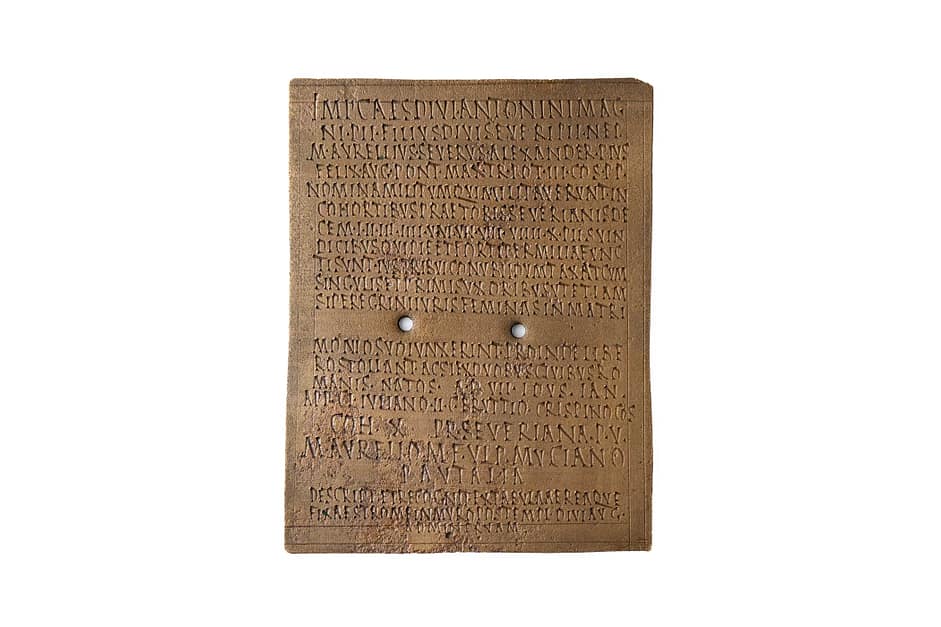 IMP CAES DIVI ANTONINI MAG
NI PII FILIVS DIVI SEVERI PII NEP
M AVRELLIVS SEVERVS ALEXANDER PIVS
FELIX AVG PONT MAX TR POT III COS P P
NOMINA MILITVM QVI MILITAVERVNT IN
COHORTIBVS PRAETORIS SEVERIANIS DE
CEM I II III IIII V VI VII VIII VIIII X P V S VIN
DICIBVS QVI PIE ET FORTITER MILITIA FVNC
TI SVNT IVS TRIBVI CONVBII DVMTAXAT CVM
SINGVLIS ET PRIMIS VXORIBVS VT ETIAM
SI PEREGRINI IVRIS FEMINAS IN MATRI
MONIO SVO IVNXERINT PROINDE LIBE
ROS TOLLANT AC SI EX DVOBVS CIVIBVS RO
MANIS NATOS A D VII IDVS IAN
APP CL IVLIANO II C BRVTTIO CRISPINO COS
COH X PR SEVERIANA P V
M AVRELIO M F VLP MVCIANO
PAVTALIA
DESCRIPT ET RECOGNIT EX TABVLA AEREA QVE
FIXA EST ROME IN MVRO POS TEMPL DIVI AVG
AD MINERVAM